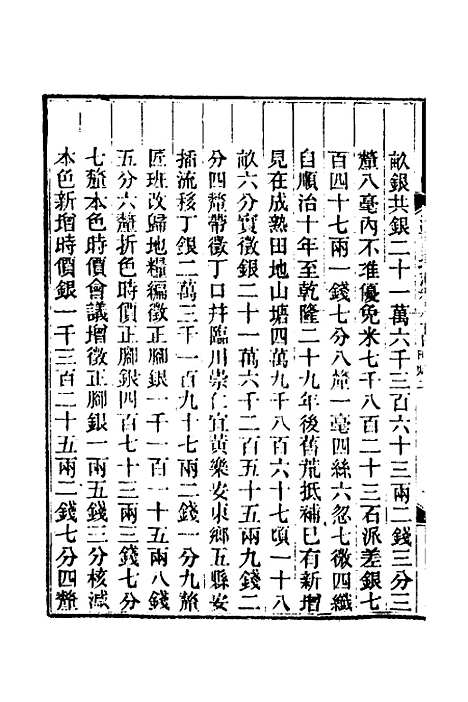 畝銀共銀二十一萬六千三百六十三兩二錢三分三
釐八毫內不准優免米七千八百二十三石派差銀七
百四十七兩一錢七分八釐一毫四絲六忽七微四纖
自順治十年至乾隆二十九年後舊荒抵補已有新增
見在成熟田地山塘四萬九千八百六十七頃一十八
畝六分實徵銀二十一萬六千二百五十五兩九錢二
分四釐帶徵丁口幷臨川崇仁宜黃樂安東鄉五縣安
插流移丁銀二萬三千一百九十七兩二錢一分九釐
匠班改歸地糧編徵正腳銀一千一百一十五兩八錢
五分六釐折色時價正腳銀四百七十三兩三錢七分
七釐本色時價會議增徵正腳銀一兩五錢三分核減
本色新增時價銀一千三百二十五兩二錢七分四釐